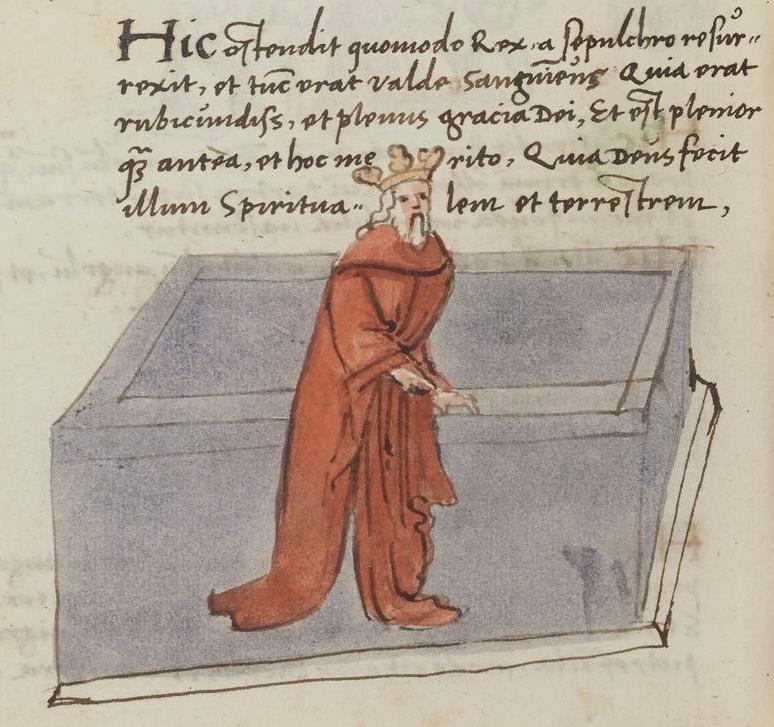 Hic ostendit quomodo Rex a sepulchro resur-
rexit, et tūc erat valde Sanguīeus Quia erat
rubicundiss, et plenus gracia Dei, Et est plenior
qꝫ antea, et hoc me rito, Quia Deus fecit
illum Spiritua-- lem et terrestrem,